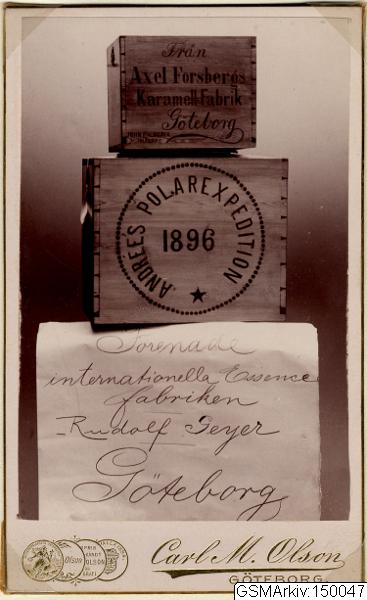 Från
Axel Forsbergs
Karamell-Fabrik
Göteborg
ANDRÉES POLAREXPEDITION
1896
Förenade
internationella Essence
fabriken
Rudolf Geyer
Göteborg
Carl M. Olson
GÖTEBORG.
GSMArkiv:150047